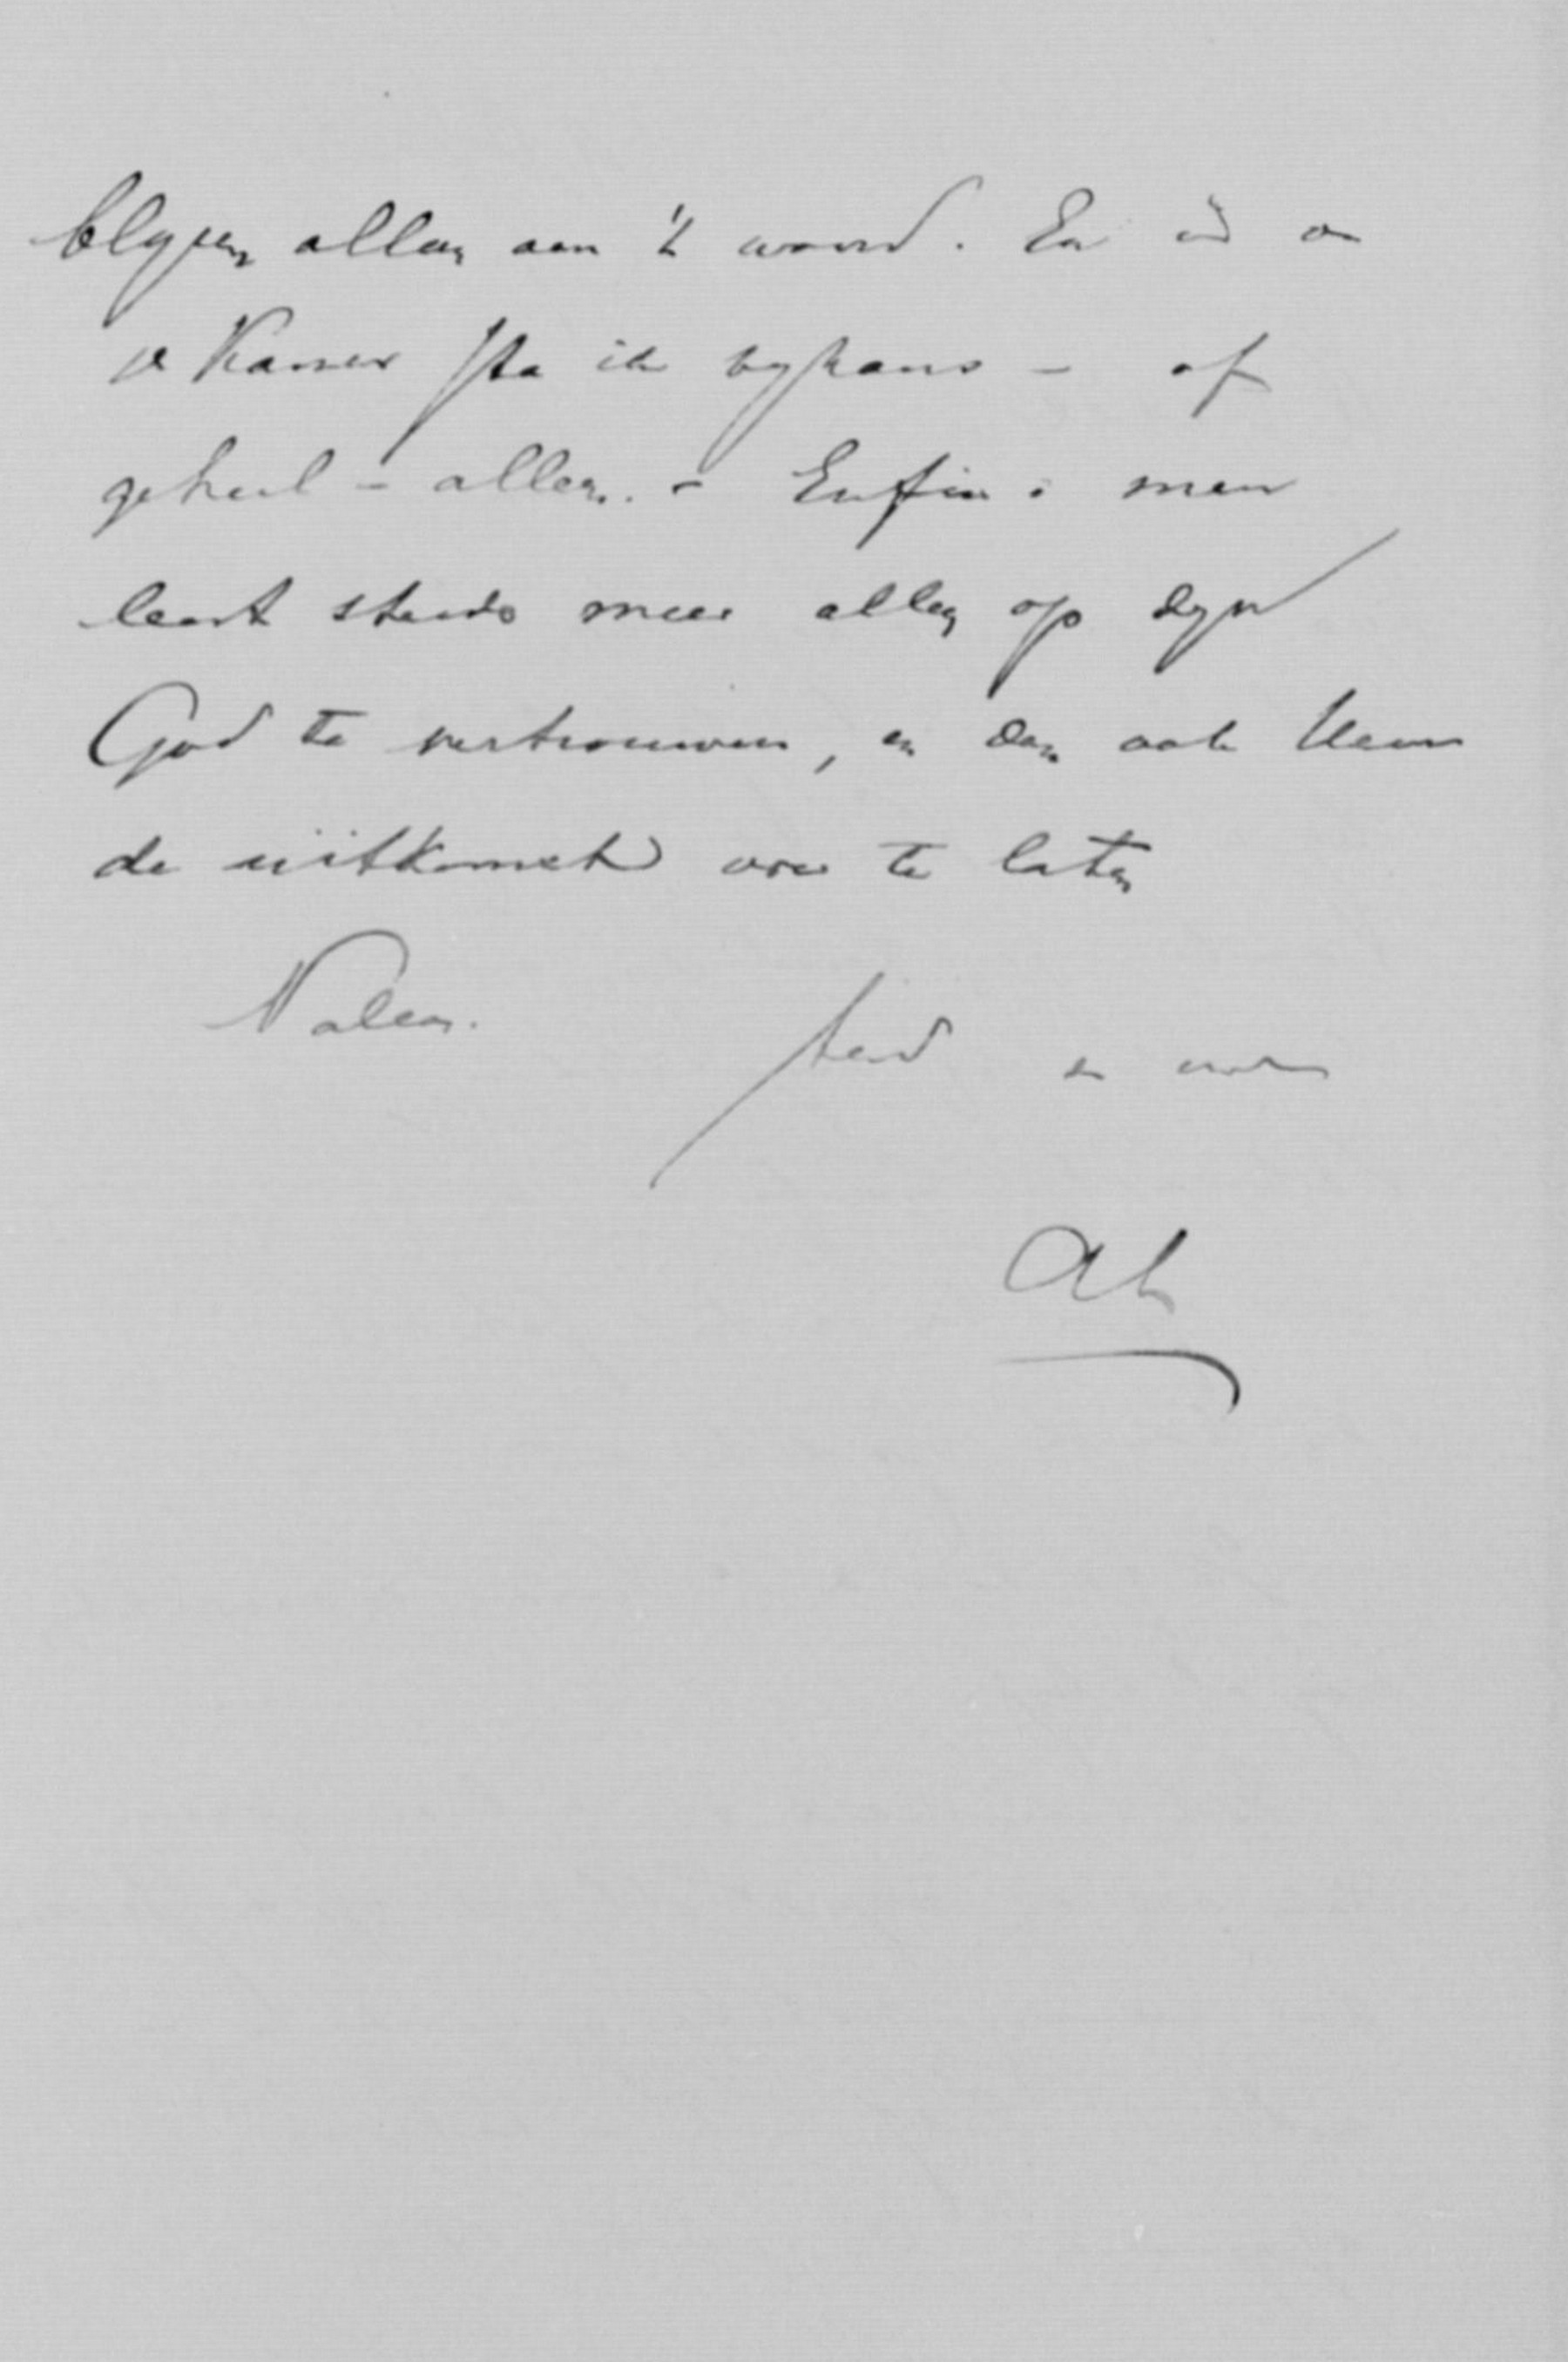 blyven alleen aan 't woord. En in de
Kamer sta ik bykans - of
geheel - alleen. - Enfin: men
leert steeds meer alleen op zyn
God te vertrouwen, en dan ook Hem
de uitkomst over te laten
t. en
AK